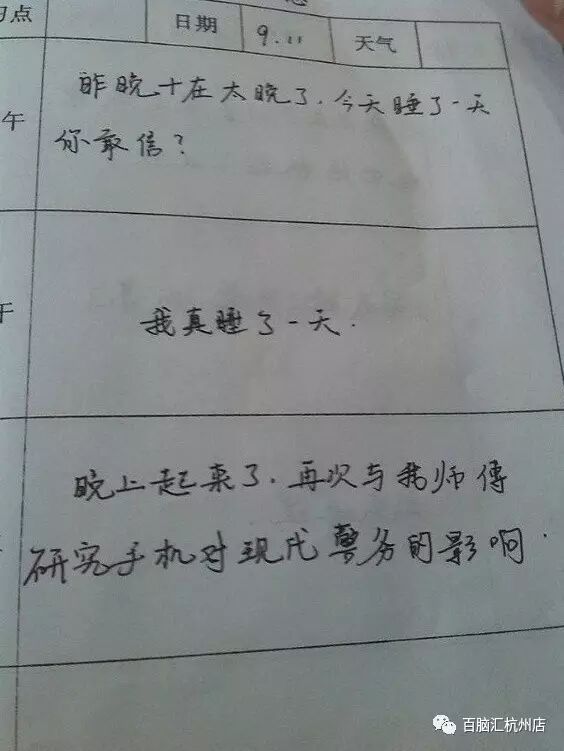 习点 日期 9.11 天气
午 昨晚十在太晚了.今天睡了一天
你敢信?
午 我真睡了一天.
晚上起来了.再次与我师傅
研究手机对现代警务的影响.
百脑汇杭州店